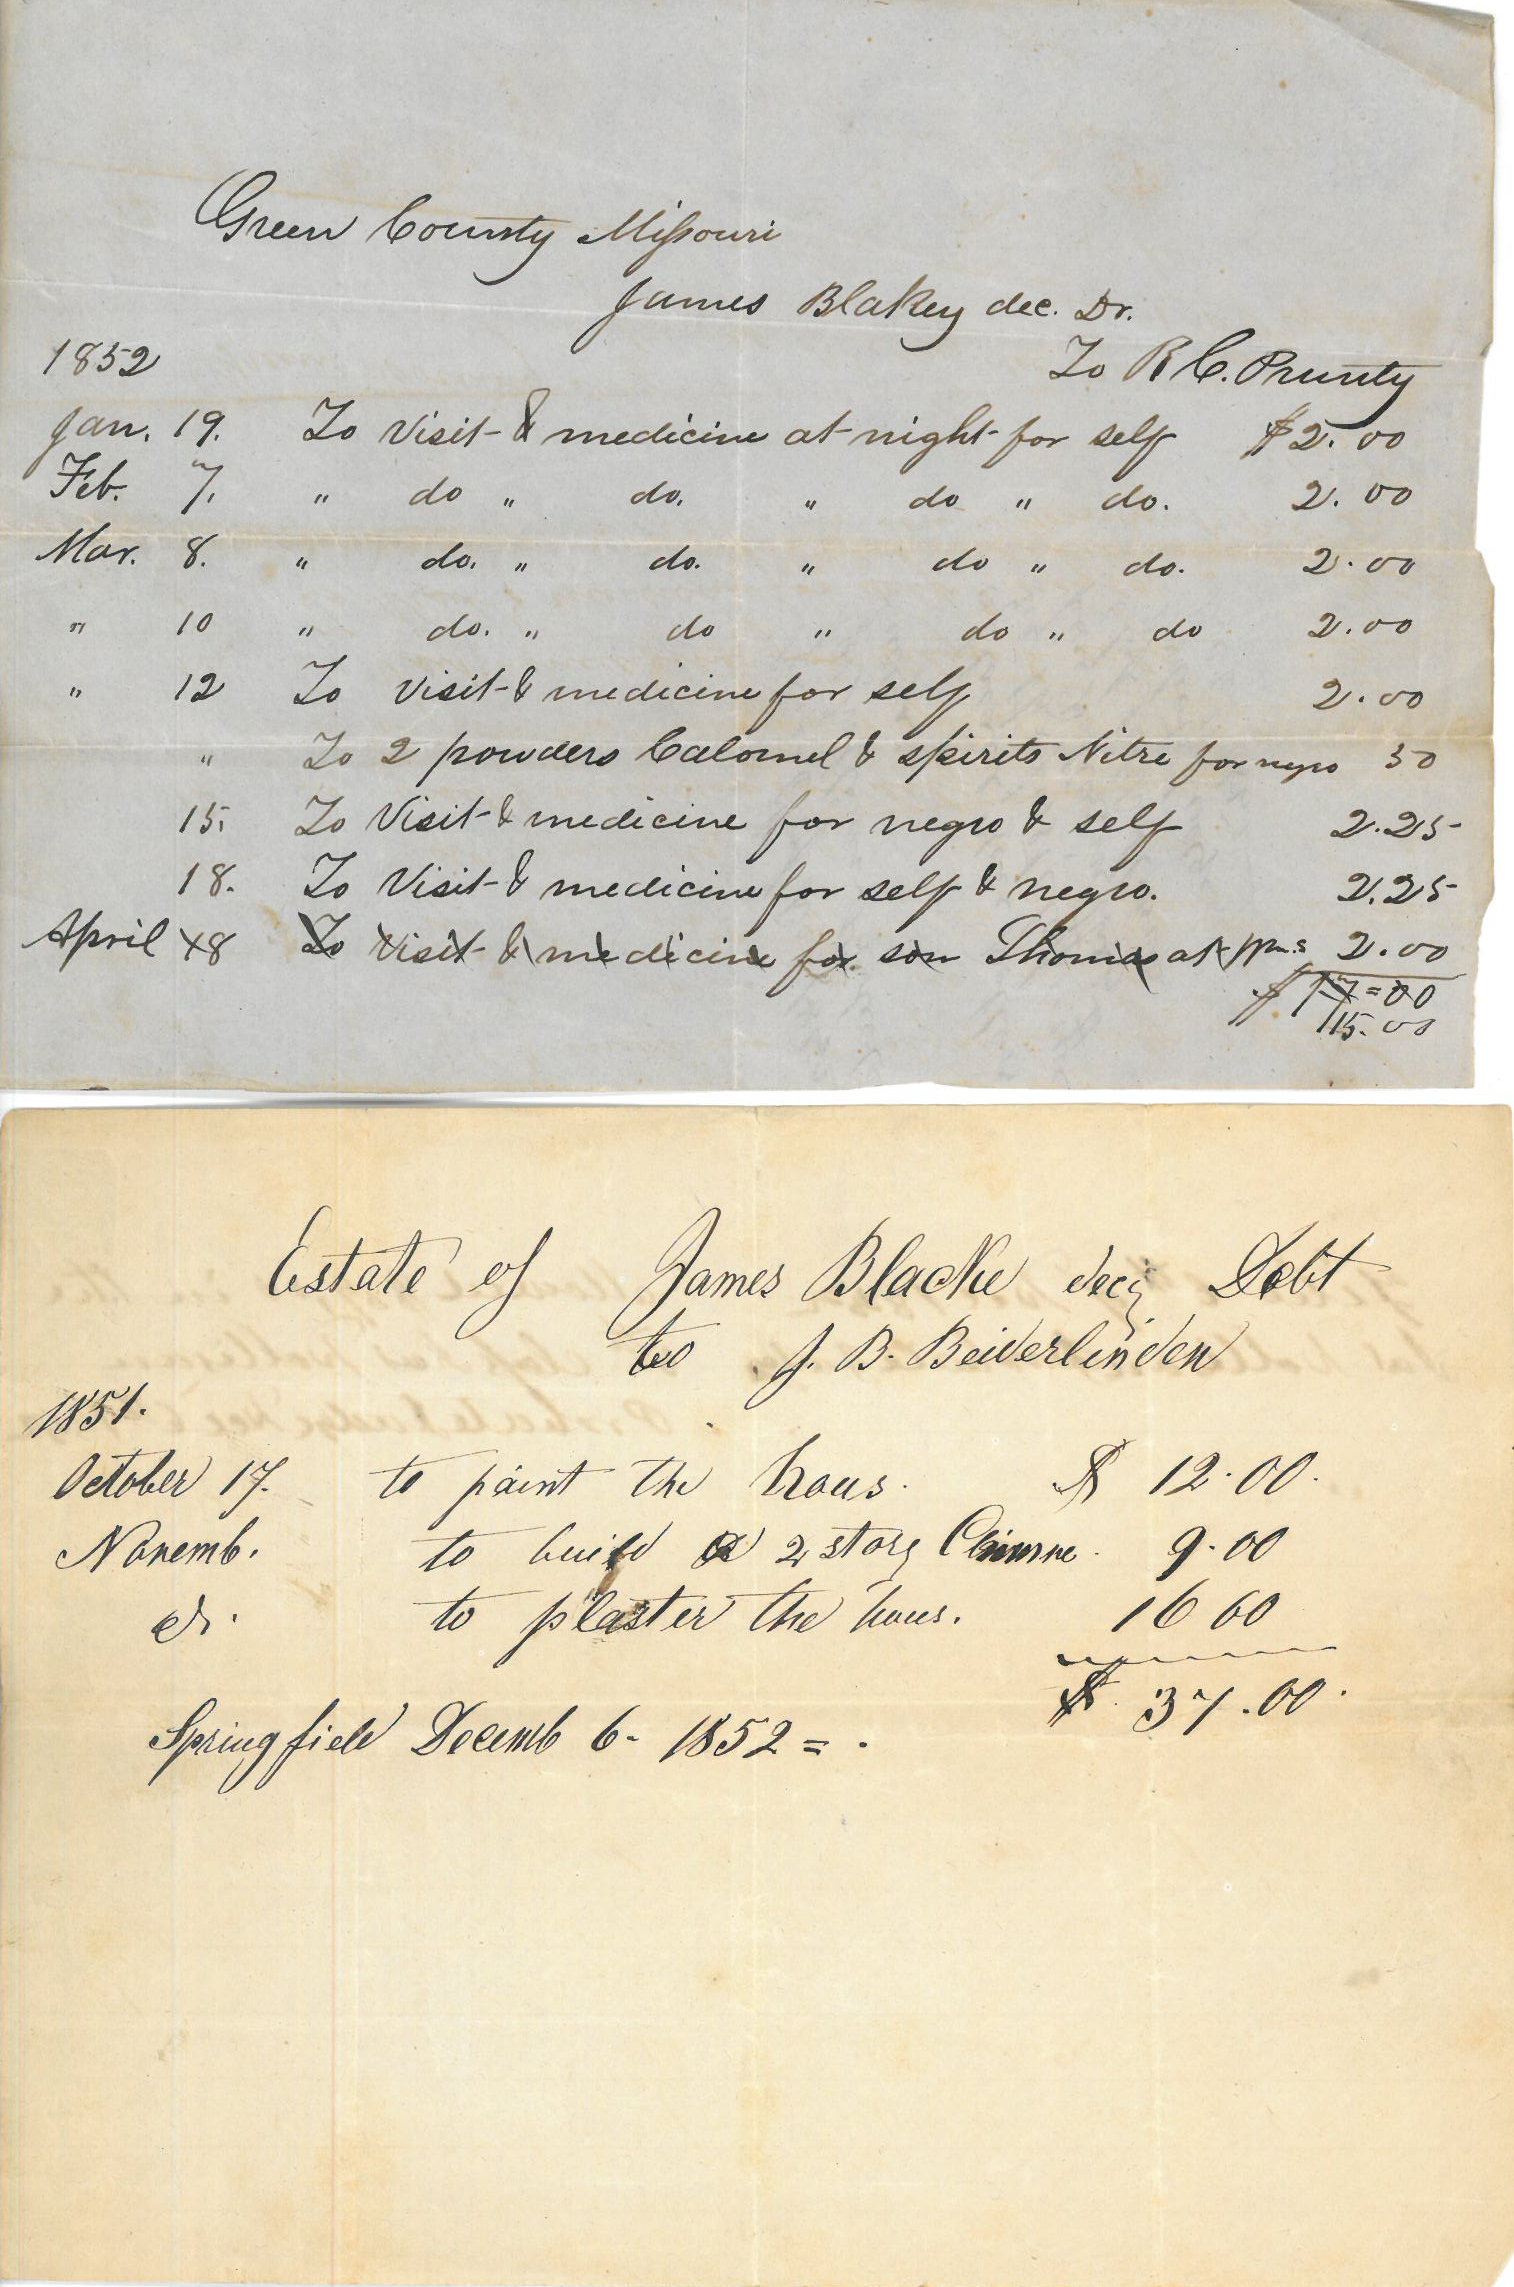 Green County Missouri
James Blakey dec. Dr.
1852 To R C. Prunty
Jan. 19. To Visit & medicine at night for self $2.00
Feb. 7. " do " do. " do " do. 2.00
Mar. 8. " do. " do. " do " do. 2.00
" 10 " do. " do " do " do 2.00
" 12 To visit & medicine for self 2.00
" To 2 powders Calomel & spirits Nitre for negro 50
15. To Visit & medicine for negro & self 2.25
18. To Visit & medicine for self & negro. 2.25
April 18 To Visit & medicine for son Thomas at 2.00
$17=00
15.00
Estate of James Blacke Debt
to J. B. Beiderlinden
1851.
October 17. to paint the hous. $ 12.00.
Novemb. to build a 2 story 9.00
to plaster the hous. 16 00
$. 37.00.
Springfield Decemb 6- 1852 = .